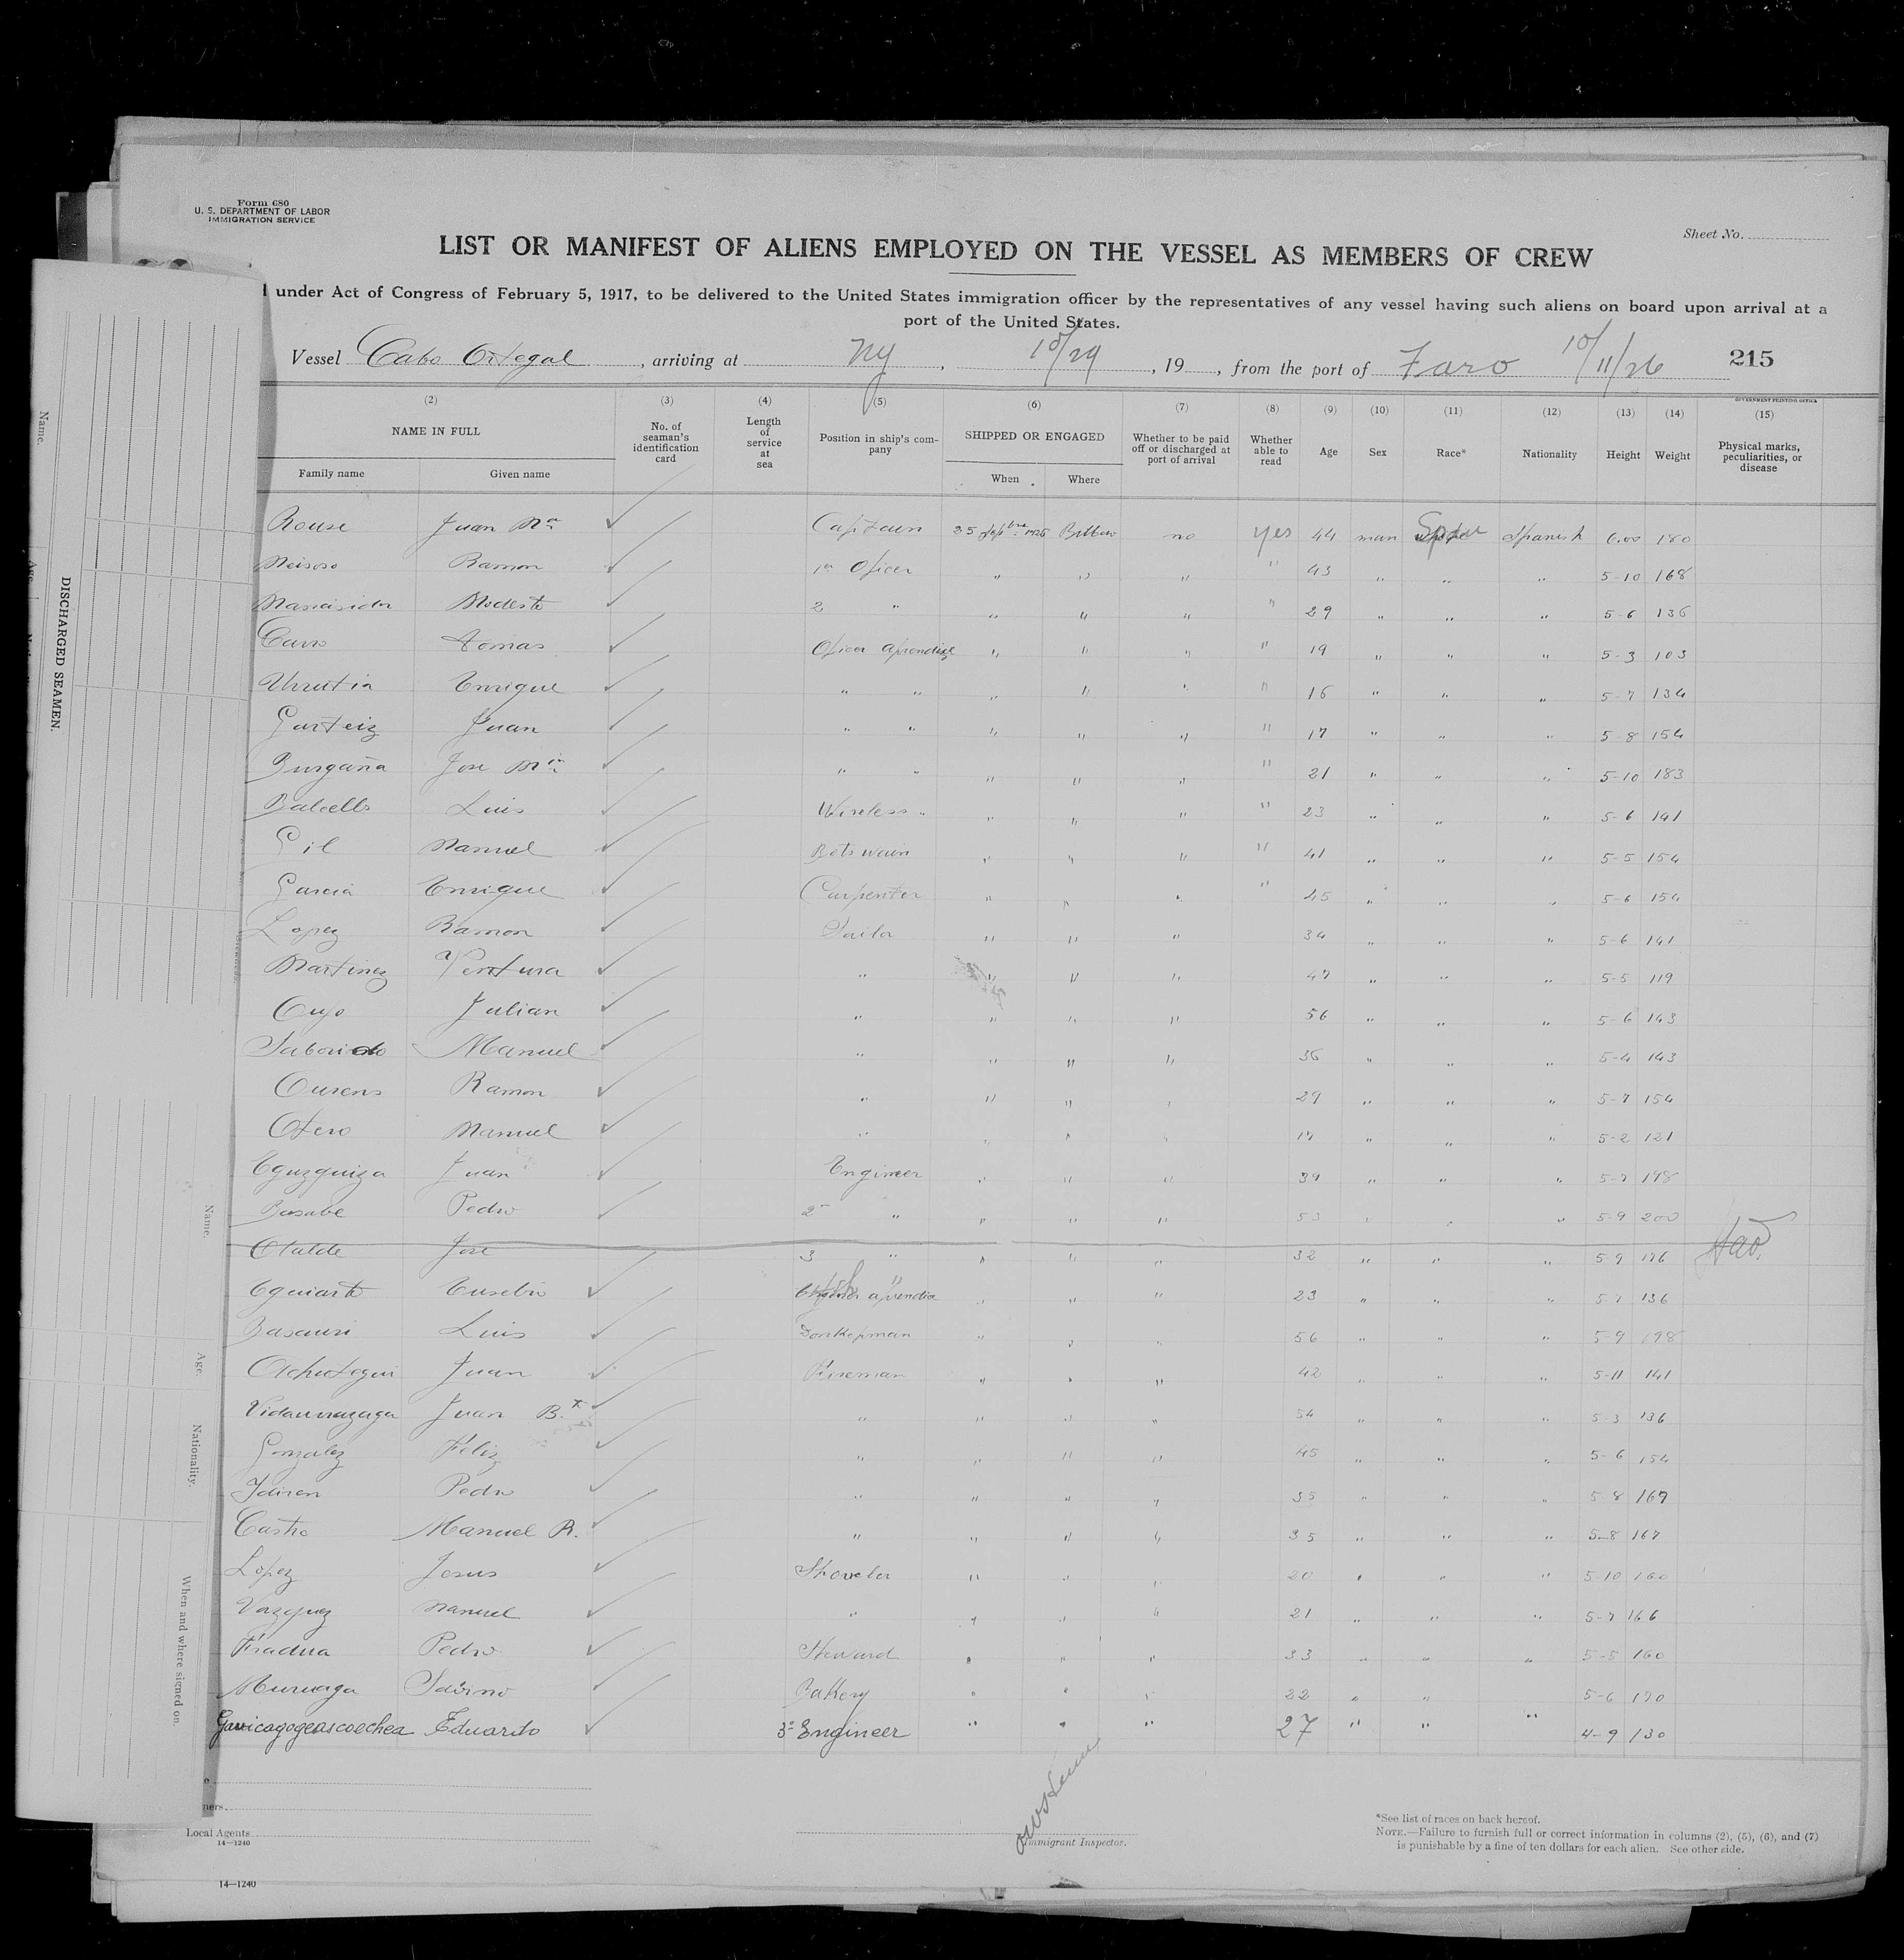 Form 680
U. S. DEPARTMENT OF LABOR
IMMIGRATION SERVICE
Sheet No.
LIST OR MANIFEST OF ALIENS EMPLOYED ON THE VESSEL AS MEMBERS OF CREW
under Act of Congress of February 5, 1917, to be delivered to the United States immigration officer by the representatives of any vessel having such aliens on board upon arrival at a
port of the United States.
Vessel Cabo Ortegal, arriving at NY, 10/29, 19, from the port of Faro 10/11/26 215
GOVERNMENT PRINTING OFFICE
(2) (3) (4) (5) (6) (7) (8) (9) (10) (11) (12) (13) (14) (15)
NAME IN FULL No. of seaman's identification card Length of service at sea Position in ship's company SHIPPED OR ENGAGED Whether to be paid off or discharged at port of arrival Whether able to read Age Sex Race* Nationality Height Weight Physical marks, peculiarities, or disease
Family name Given name When Where
Rouse Juan Mª Capitain 25 Sepbre 1926 Bilbao no yes 44 man Spanish 6.00 180
Ramon 1er Oficer " " " " 43 " " " 5-10 168
Modesto 2 " " " " " 29 " " " 5-6 136
Tomas Oficer aprendize " " " " 19 " " " 5-3 103
Urrutia Enrique " " " " " " 16 " " " 5-7 134
Garteiz Juan " " " " " " 17 " " " 5-8 154
Burgaña Jose Mª " " " " " " 21 " " " 5-10 183
Balcells Luis Wireless " " " " " 23 " " " 5-6 141
Gil Manuel Botswain " " " " 41 " " " 5-5 154
Garcia Enrique Carpenter " " " " 45 " " " 5-6 154
Lopez Ramon Sailor " " " 34 " " " 5-6 141
Martinez Ventura " " " " 47 " " " 5-5 119
Julian " " " " 56 " " " 5-6 143
Saborido Manuel " " " " 36 " " " 5-4 143
Ourens Ramon " " " " 29 " " " 5-7 154
Otero Manuel " " " " 17 " " " 5-2 121
Eguzquiza Juan Engineer " " " 39 " " " 5-7 198
Basabe Pedro 2º " " " " 53 " " " 5-9 200
Olalde Jose 3 " " " " 32 " " " 5-9 176
Eguiarte Eusebio aprendiz " " " 23 " " " 5-7 136
Basauri Luis Donkeyman " " " 56 " " " 5-9 198
Achutegui Juan Fireman " " " 42 " " " 5-11 141
Vidaurrazaga Juan B.ta " " " " 54 " " " 5-3 136
Gonzalez Feliz " " " " 45 " " " 5-6 154
Pedro " " " " 35 " " " 5-8 167
Castro Manuel R. " " " " 35 " " " 5-8 167
Lopez Jesus Shoveler " " " 20 " " " 5-10 160
Vazquez Manuel " " " " 21 " " " 5-7 166
Fradua Pedro Steward " " " 33 " " " 5-5 160
Muruaga Sabino Bakery " " " 22 " " 5-6 170
Gavicagogeascoechea Eduardo 3º Engineer " " " 27 " " " 4-9 130
Local Agents
14—1240
Immigrant Inspector.
*See list of races on back hereof.
NOTE.—Failure to furnish full or correct information in columns (2), (5), (6), and (7)
is punishable by a fine of ten dollars for each alien. See other side.
14—1240
DISCHARGED SEAMEN.
Name.
Age.
Name.
Age.
Nationality.
When and where signed on.